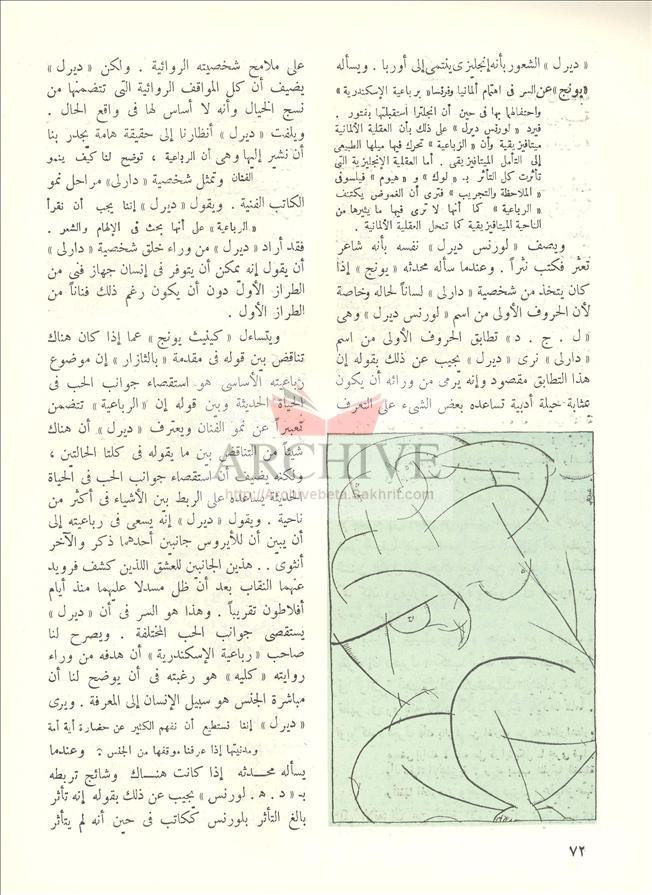 « ديرل » الشعور بأنه إنجليزى ينتمى إلى أوربا . ويسأله
« يونج » عن السر فى اهتمام ألمانيا وفرنسا « برباعية الإسكندرية »
واحتفالهما بها فى حين أن انجلترا استقبلتها بفتور .
فيرد « لورنس ديرل » على ذلك بأن العقلية الألمانية
ميتافيزيقية وأن « الرباعية » تحرك فيها ميلها الطبيعى
إلى التأمل الميتافيزيقى . أما العقلية الإنجليزية التى
تأثرت كل التأثر بـ « لوك » و « هيوم » فيلسوفى
« الملاحظة والتجريب » فترى أن الغموض يكتنف
« الرباعية » كما أنها لا ترى فيها ما يثيرها من
الناحية الميتافيزيقية كما تنحل العقلية الألمانية .
ويصف « لورنس ديرل » نفسه بأنه شاعر
تعثر فكتب نثراً . وعندما سأله محدثه « يونج » إذا
كان يتخذ من شخصية « دارلى » لساناً لحاله وخاصة
لأن الحروف الأولى من اسم « لورنس ديرل » وهى
« ل . ج . د » تطابق الحروف الأولى من اسم
« دارلى » نرى « ديرل » يجيب عن ذلك بقوله إن
هذا التطابق مقصود وإنه يرمى من ورائه أن يكون
بمثابة حيلة أدبية تساعده بعض الشىء على التعرف
على ملامح شخصيته الروائية . ولكن « ديرل »
يضيف أن كل المواقف الروائية التى تتضمنها من
نسج الخيال وأنه لا أساس لها فى واقع الحال .
ويلفت « ديرل » أنظارنا إلى حقيقة هامة يجدر بنا
أن نشير إليها وهى أن الرباعية ، توضح لنا كيف ينمو
الفنان وتمثل شخصية « دارلى » مراحل نمو
الكاتب الفنية . ويقول « ديرل » إننا يجب أن نقرأ
« الرباعية » على أنها بحث فى الإلهام والشعر .
فقد أراد « ديرل » من وراء خلق شخصية « دارلى »
أن يقول إنه يمكن أن يتوفر فى إنسان جهاز فنى من
الطراز الأول دون أن يكون رغم ذلك فناناً من
الطراز الأول .
ويتساءل « كينيث يونج » عما إذا كان هناك
تناقض بين قوله فى مقدمة « بالثازار » إن موضوع
رباعيته الأساسى هو استقصاء جوانب الحب فى
الحياة الحديثة وبين قوله إن « الرباعية » تتضمن
تعبيراً عن نمو الفنان ويعترف « ديرل » أن هناك
شيئاً من التناقض بين ما يقوله فى كلتا الحالتين ،
ولكنه يضيف أن استقصاء جوانب الحب فى الحياة
الحديثة يساعده على الربط بين الأشياء فى أكثر من
ناحية . ويقول « ديرل » إنه يسعى فى رباعيته إلى
أن يبين أن للأيروس جانبين أحدهما ذكر والآخر
أنثوى . . هذين الجانبين للعشق اللذين كشف فرويد
عنهما النقاب بعد أن ظل مسدلا عليهما منذ أيام
أفلاطون تقريباً . وهذا هو السر فى أن « ديرل »
يستقصى جوانب الحب المختلفة . ويصرح لنا
صاحب « رباعية الإسكندرية » أن هدفه من وراء
روايته « كليه » هو رغبته فى أن يوضح لنا أن
مباشرة الجنس هو سبيل الإنسان إلى المعرفة . ويرى
« ديرل » إننا نستطيع أن نفهم الكثير عن حضارة أية أمة
ومدنيتها إذا عرفنا موقفها من الجنس . وعندما
يسأله محدثه إذا كانت هناك وشائج تربطه
بـ « د . هـ . لورنس » يجيب عن ذلك بقوله إنه تأثر
بالغ التأثر بلورنس ككاتب فى حين أنه لم يتأثر
ARCHIVE
http://Archivebeta.Sakhrit.com
٧٢